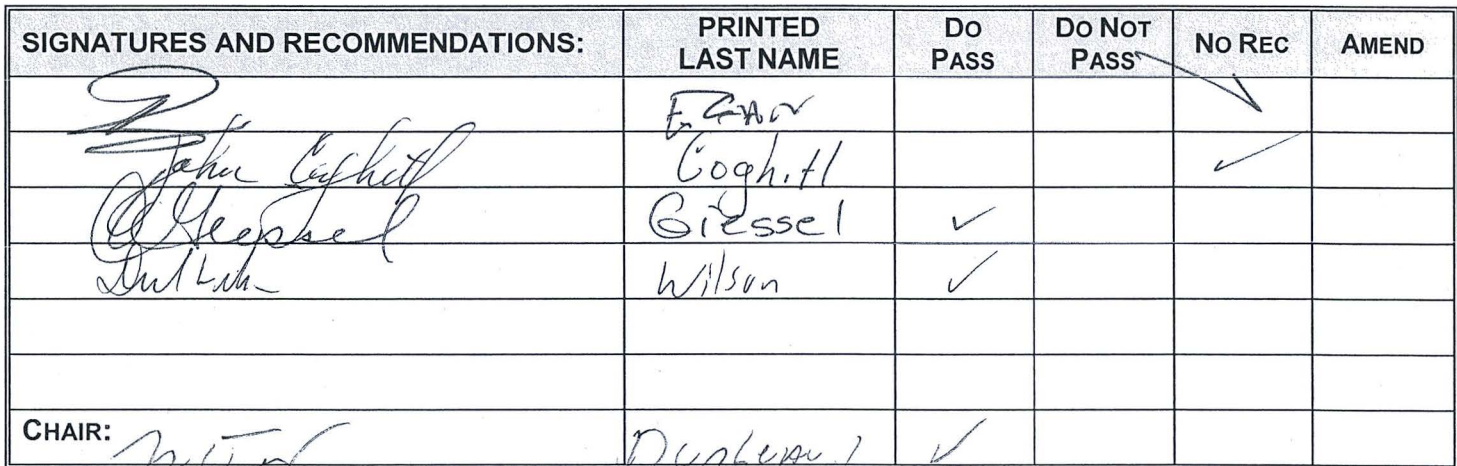 SIGNATURES AND RECOMMENDATIONS: PRINTED LAST NAME DO PASS DO NOT PASS NO REC AMEND
EGAN ✓
John Coghill Coghill ✓
CGiessel Giessel ✓
Wilson ✓
CHAIR: Dunleavy ✓